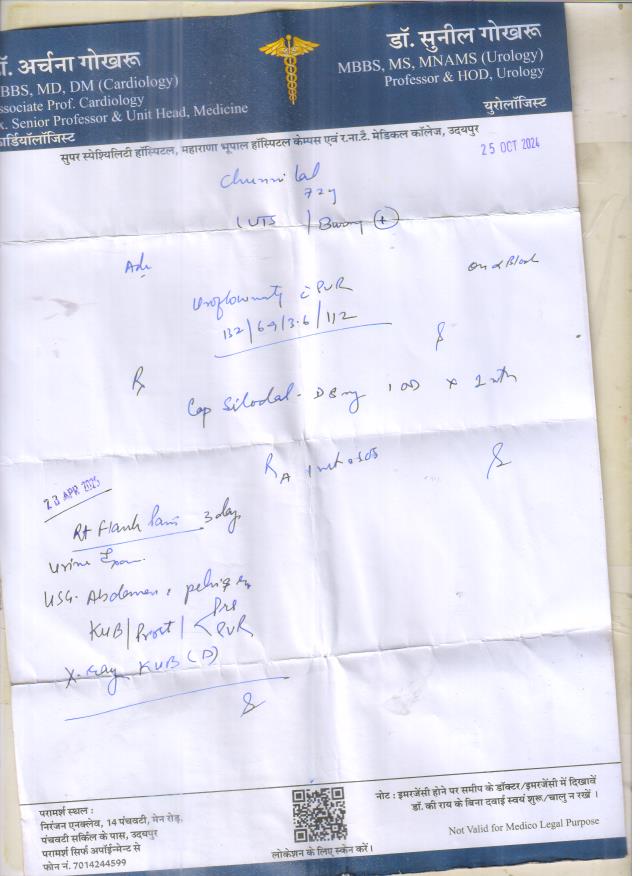 डॉ. अर्चना गोखरू
MBBS, MD, DM (Cardiology)
Associate Prof. Cardiology
Ex. Senior Professor & Unit Head, Medicine
कार्डियॉलॉजिस्ट
डॉ. सुनील गोखरू
MBBS, MS, MNAMS (Urology)
Professor & HOD, Urology
युरोलॉजिस्ट
सुपर स्पेश्यिलिटी हॉस्पिटल, महाराणा भूपाल हॉस्पिटल केम्पस एवं र.ना.टै. मेडिकल कॉलेज, उदयपुर
25 OCT 2024
Chunni Lal
72y
LUTS /
Adv
Uroflowmetry c PVR
132/69/3.6/112
Rx
Cap Silodal-D 8mg 1 OD x
23 APR 2025
Rt Flank Pain 3 day
Urine Exam.
USG. Abdomen
KUB/Prost/ < Pre
PVR
X-ray KUB (D)
परामर्श स्थल :
निरंजन एनक्लेव, 14 पंचवटी, मेन रोड़,
पंचवटी सर्किल के पास, उदयपुर
परामर्श सिर्फ अपॉईन्मेन्ट से
फोन नं. 7014244599
लोकेशन के लिए स्केन करें।
नोट : इमरजेंसी होने पर समीप के डॉक्टर/इमरजेंसी में दिखावें
डॉ. की राय के बिना दवाई स्वयं शुरू/चालु न रखें ।
Not Valid for Medico Legal Purpose